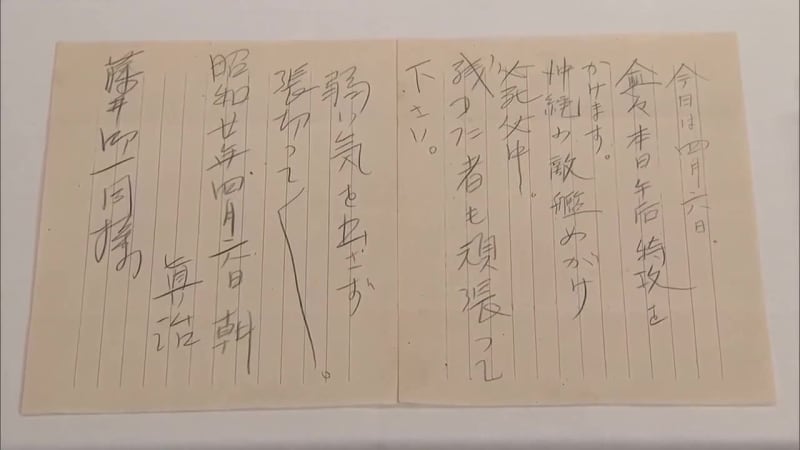 今日は四月六日.
愈々本日午后特攻を
かけます。
沖縄の敵艦めがけ
必死必中。
残った者も頑張って
下さい。
弱い気を出さず
張切って〱。
昭和廿年四月六日 朝
眞治
藤井御一同様